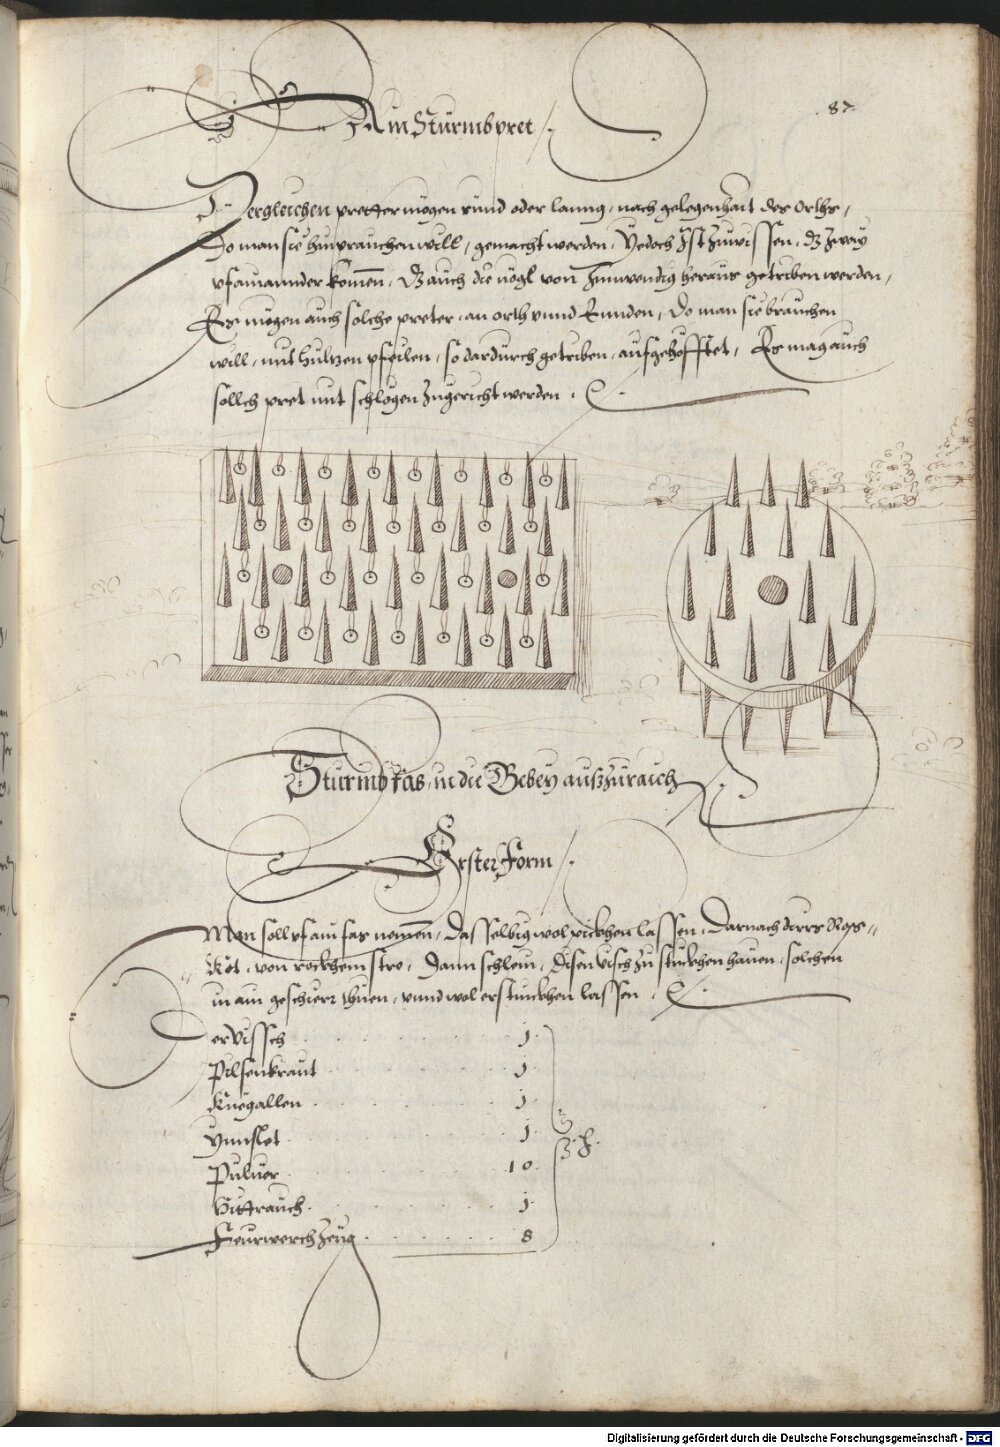 87
Ain Sturmbpret
Dergleichen pretter mögen rund oder lanng, nach gelegenhait des Orths,
Do man sie hin prauchen will, gemacht werden. Yedoch Ist Zuwissen, Dz Zway
vf ainannder komen, Dz auch die nögl von Innwendig heraus getriben werden,
Es mögen auch solche preter, an orth vnnd Ennden, Do man sie brauchen
will, mit hultzen pfeilen, so dardurch getriben, aufgehöfftet, Es mag auch
sollch pret mit schlögen Zugericht werden.
Sturmbfas, in die Bebey außzurauch
Erster Form
Man soll ain fas nemen, Dasselbig wol pickhen lassen, Darnach dirrs Ros-
Kot, von rockhem stro, Dann schleim, disen visch zu stuckhen hauen, solchen
in ain geschierr thuen, vnnd wol erstinckhen lassen.
er Vissch 1
Pilsenkraut 1
Kuegallen 1
Ynnslet 1
Puluer 10
Hittrauch 1
Feurwerch Zeug 8
Digitalisierung gefördert durch die Deutsche Forschungsgemeinschaft - DFG